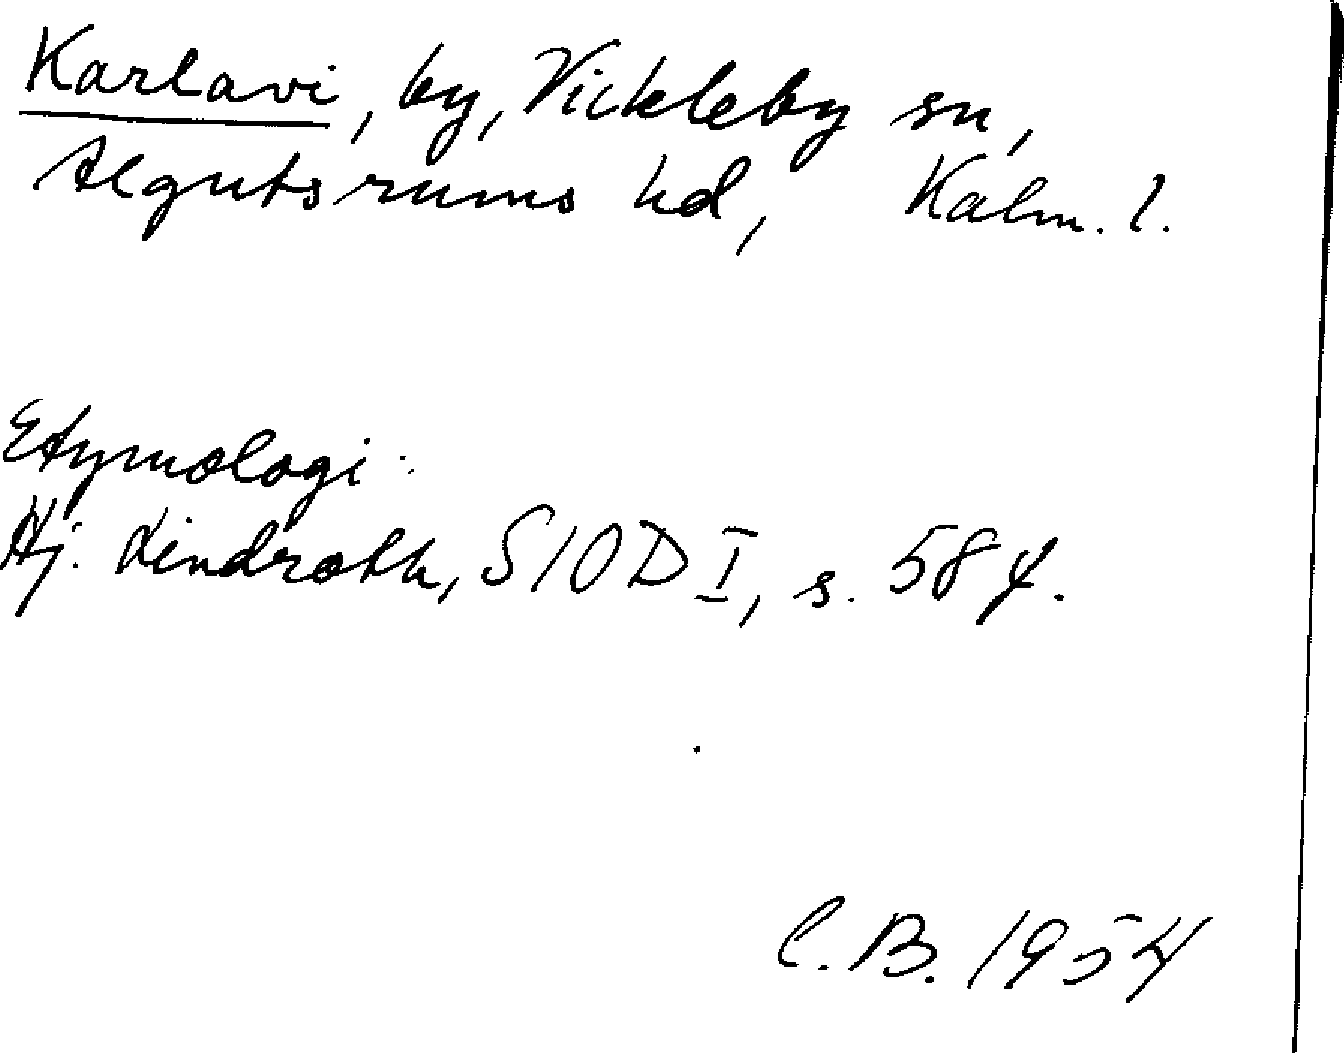 Karlavi, by, Vickleby sn,
Algutsrums hd, Kalm. l.
Etymologi:
Hj. Lindroth, SIOD I, s. 58 f.
C.B. 1954